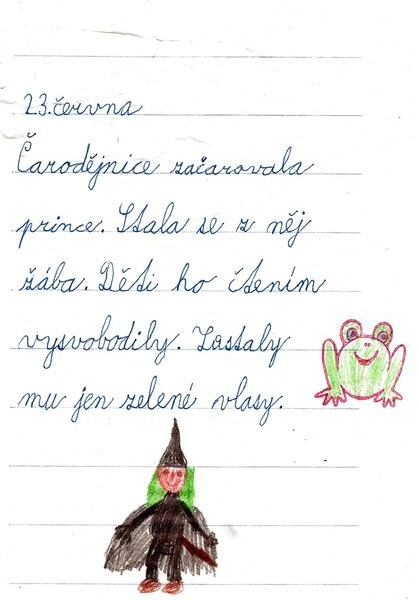 23.června
Čarodějnice začarovala
prince. Stala se z něj
žába. Děti ho čtením
vysvobodily. Zastaly
mu jen zelené vlasy.